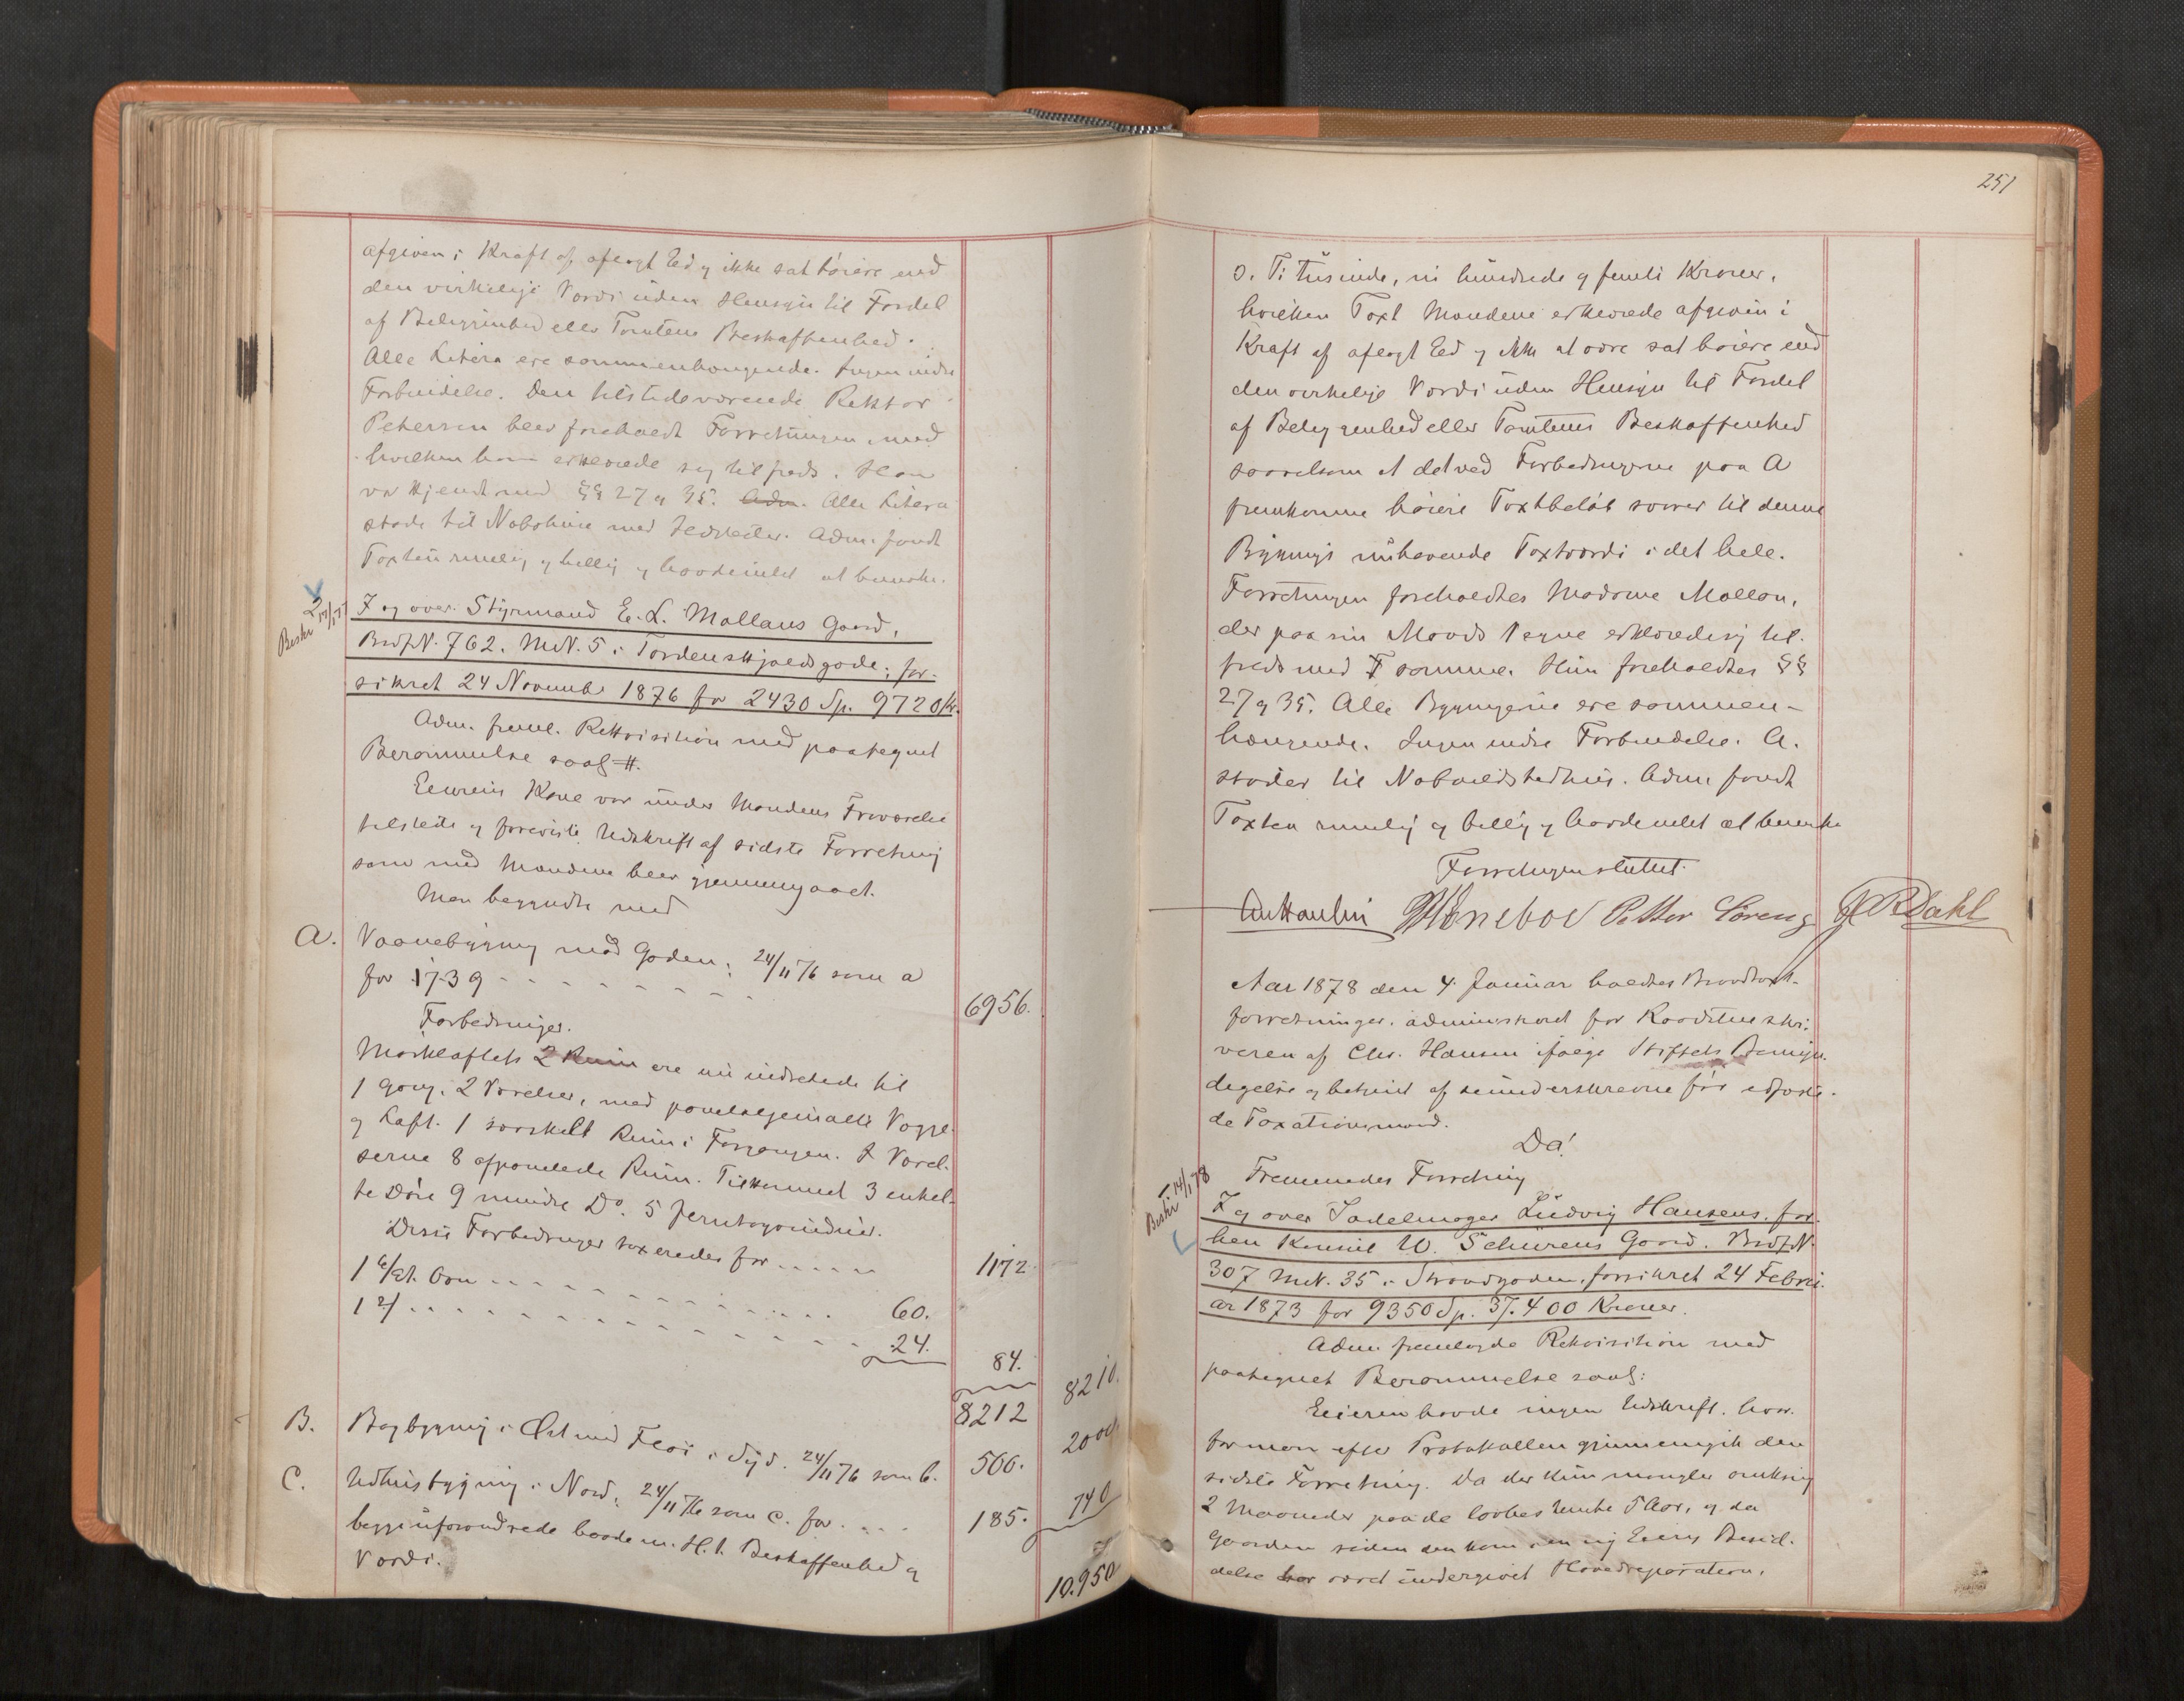 afgiven i Kraft af aflagt Ed og ikke sat høiere end
den virkelige Værdi uden Hensyn til Fordel
af Beliggenhed eller Tomtens Beskaffenhed.
Alle Litera ere sammenhængende. Ingen indre
Forbindelse. Den tilstedeværende Rektor
Petersen blev foreholdt Forretningen med
hvilken han erklærede sig tilfreds. Han
var kjendt med §§ 27 og 35. Adm. Alle Litera
støde til Nabohuse med Ildsteder. Adm. fandt
Taxten rimelig og billig og havde intet at bemærke.
2
Beskr
I og over Styrmand E. L. Mollans Gaard,
BrdfN. 762. MN. 5 i Tordenskjoldsgade; for-
sikret 24 November 1876 for 2430 Sp. 9720 Kr.
Adm. freml. Rekvisition med paategnet
Berammelse saal. #.
Eierens Kone var under Mandens Fraværelse
tilstede og foreviste Udskrift af sidste Forretning
som med Mændene blev gjennemgaaet.
Man begyndte med
A. Vaanebygning mod Gaden; 24/11 76 som a
for 1739 - - - - - - - - - 6956.
Forbedringer.
Mørkloftets 2 Rum ere nu indredede til
1 Gang, 2 Værelser, med panelet gemalte Vægge
og Loft. 1 særskilt Rum i Forgangen. I Værel-
serne 8 afpanelede Rum. Tilkommet 3 enkel-
te Døre 9 mindre Do. 5 Jerntagvinduer.
Disse Forbedringer taxeredes for - - - - - 1172
1 6/Et. Ovn - - - - - - - - - - 60.
1 2/ - - - - - - - - - - - 24.
84.
8212 8210.
B. Bagbygning i Øst med Fløi i Syd. 24/11 76 som b. 500. 2000
C. Udhusbygning i Nord; 24/11 76 som c. for - - - 185. 740
begge uforandrede baade m. H. t. Beskaffenhed og
Værdi. 10.950
251
s. Ti tusinde, ni hundrede og femti Kroner,
hvilken Taxt Mændene erklærede afgiven i
Kraft af aflagt Ed og ikke at være sat høiere end
den virkelige Værdi uden Hensyn til Fordel
af Beliggenhed eller Tomtens Beskaffenhed
saavelsom at det ved Forbedringerne paa A
fremkomne høiere Taxtbeløb svarer til denne
Bygnings nuhavende Taxtværdi i det hele.
Forretningen foreholdtes Madame Mollan,
der paa sin Mands Vegne erklærede sig til-
freds med samme. Hun foreholdtes §§
27 og 35. Alle Bygningerne ere sammen-
hængende. Ingen indre Forbindelse. A.
støder til Naboildstedhus. Adm. fandt
Taxten rimelig og billig og havde intet at bemærke
Forretningen sluttet.
Petter Lorentz Dahl
Aar 1878 den 4. Januar holdtes Brandtaxt-
forretninger, administreret for Raadstueskri-
veren af Chr. Hansen ifølge Stiftets Bemyn-
digelse og betjent af de underskrevne før edfæste-
de Taxationsmænd.
Da!
Beskr 14/1 78
Fremmedes Forretning
I og over Sadelmager Ludvig Hansens, for-
hen Konsul W. Schürens Gaard. BrdfN.
307 MN. 35 i Strandgaden, forsikret 24 Febru-
ar 1873 for 9350 Sp. 37.400 Kroner.
Adm. fremlagde Rekvisition med
paategnet Berammelse saal:
Eieren havde ingen Udskrift, hvor-
for man efter Protokollen gjennemgik den
sidste Forretning. Da der kun mangler omkring
2 Maaneder paa de lovbestemte 5 Aar, og da
Gaarden siden den kom i en ny Eiers Besid-
delse har været undergivet Hovedreparation,